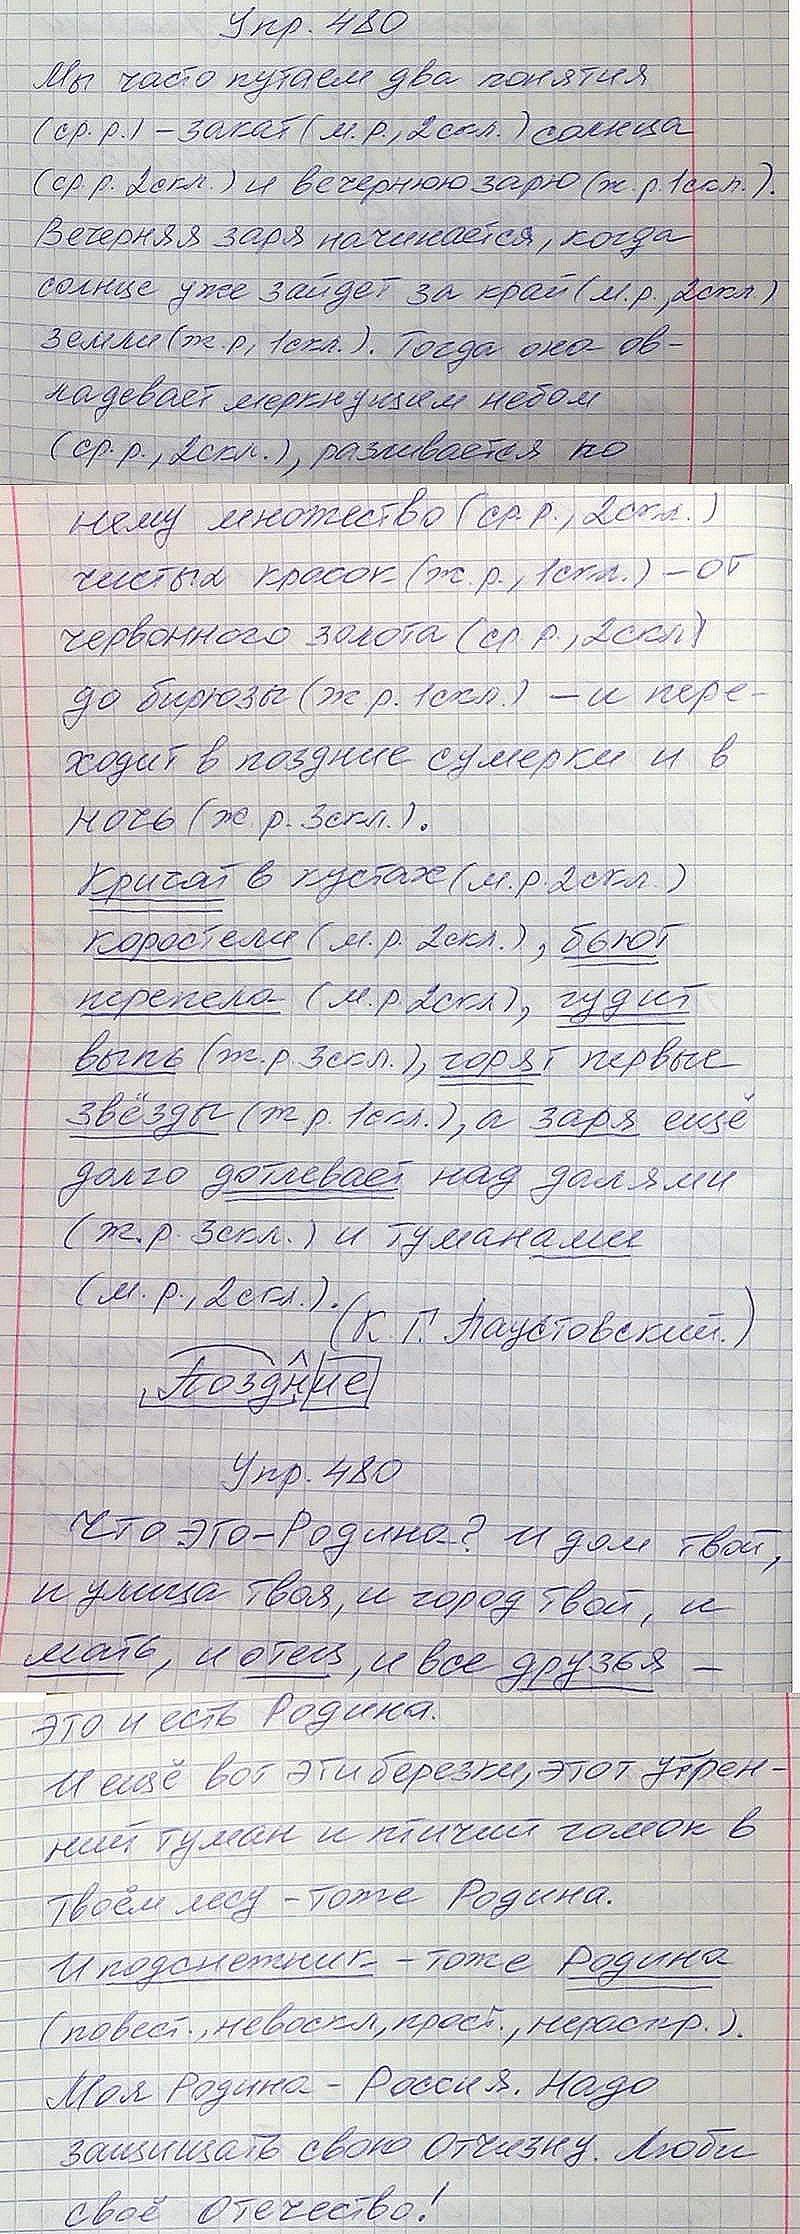 Упр. 480
Мы часто путаем два понятия
(ср.р.) – закат (м.р., 2скл.) солнца
(ср.р. 2скл.) и вечернюю зарю (ж.р. 1скл.).
Вечерняя заря начинается, когда
солнце уже зайдет за край (м.р., 2скл.)
земли (ж.р, 1скл.). Тогда она ов-
ладевает меркнущим небом
(ср.р., 2скл.), разливается по
нему множество (ср.р., 2скл.)
чистых красок (ж.р., 1скл.) – от
червонного золота (ср.р., 2скл)
до бирюзы (ж.р. 1скл.) – и пере-
ходит в поздние сумерки и в
ночь (ж.р. 3скл.).
Кричат в кустах (м.р. 2скл.)
коростели (м.р. 2скл.), бьют
перепела (м.р. 2скл), гудит
выпь (ж.р. 3скл.), горят первые
звёзды (ж.р. 1скл.), а заря ещё
долго дотлевает над далями
(ж.р. 3скл.) и туманами
(м.р., 2скл.).
(К. Г. Паустовский.)
Поздние
Упр. 480
Что это – Родина? И дом твой,
и улица твоя, и город твой, и
мать, и отец, и все друзья –
это и есть Родина.
И ещё вот эти березки, этот утрен-
ний туман и птичий гомон в
твоём лесу – тоже Родина.
И подснежник – тоже Родина
(повест., невоскл, прост., нераспр.).
Моя Родина – Россия. Надо
защищать свою Отчизну. Люби
своё Отечество!